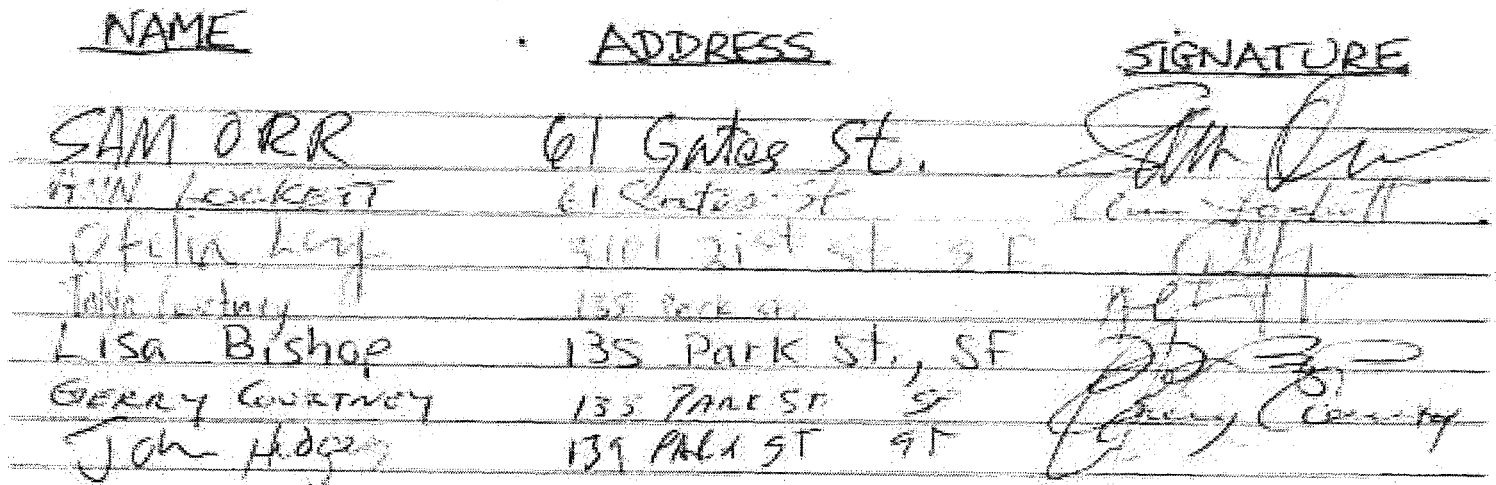 NAME ADDRESS SIGNATURE
SAM ORR 61 Gates St. Sam Orr
ANN LOCKETT 61 Gates St Ann Lockett
Ofelia 21st St SF
Courtney 135 Park St.
Lisa Bishop 135 Park St., SF
GERRY COURTNEY 135 PARK ST SF
John 139 PARK ST SF